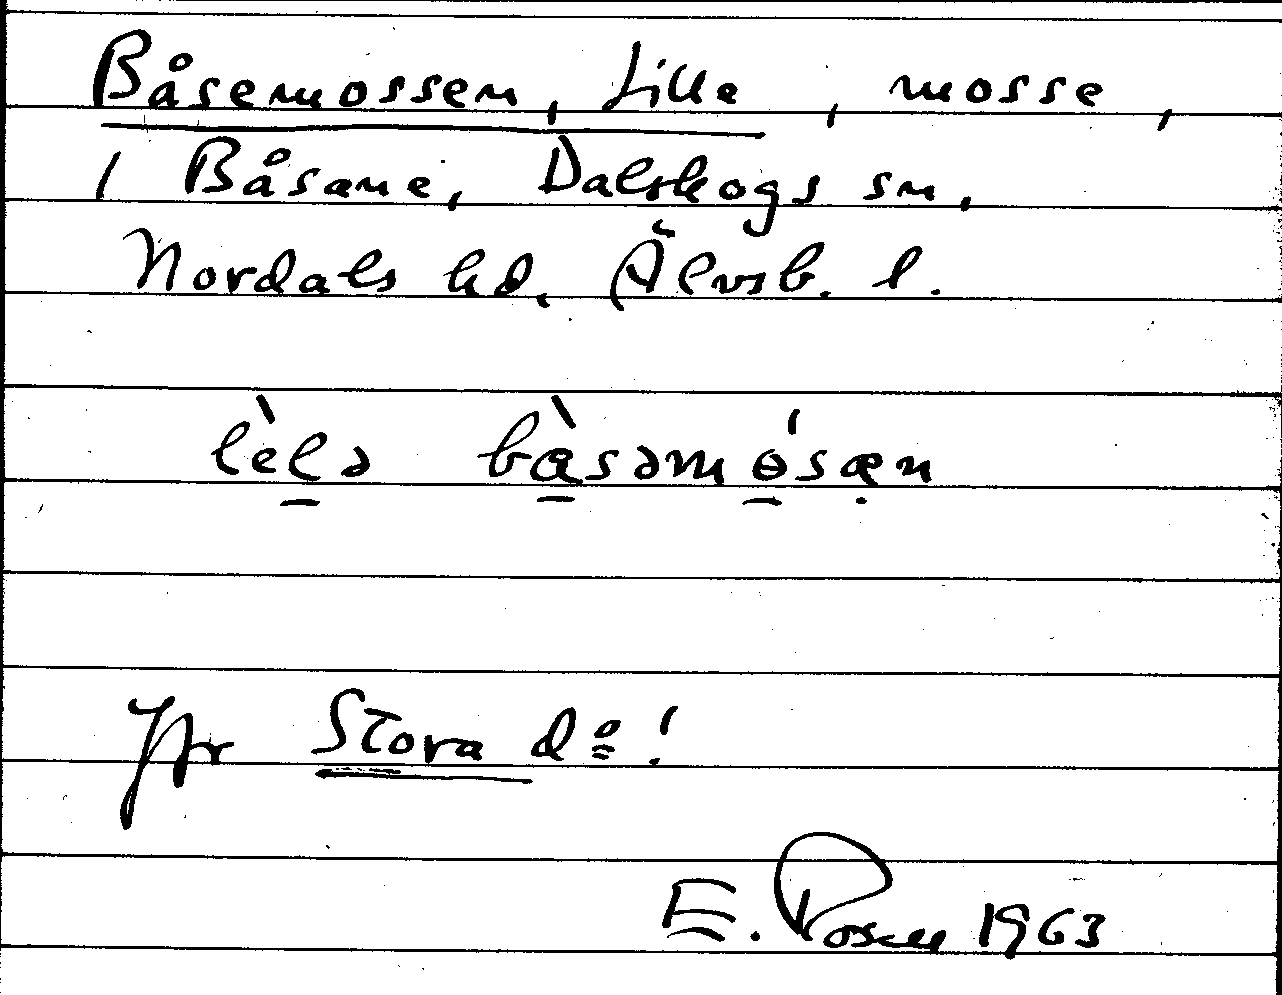 Båsemossen, Lille, mosse,
i Båsane, Dalskogs sn,
Nordals hd. Älvsb. l.
lèlə bàsəmósæn
Jfr Stora d:o!
E. 1963